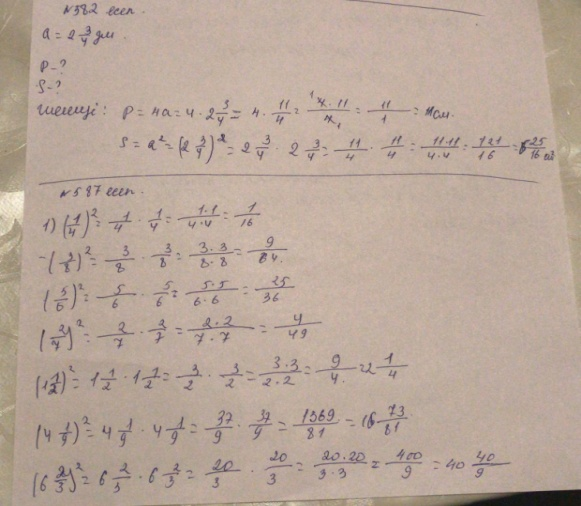 №382 есеп.
a = 2 3/4 дм
P-?
S-?
Шешуі: P = 4a = 4 · 2 3/4 = 4 · 11/4 = 4·11/4 = 11/1 = 11 см.
S = a² = (2 3/4)² = 2 3/4 · 2 3/4 = 11/4 · 11/4 = 11·11/4·4 = 121/16 = 6 25/16
№587 есеп.
1) (1/4)² = 1/4 · 1/4 = 1·1/4·4 = 1/16
- (3/8)² = 3/8 · 3/8 = 3·3/8·8 = 9/64.
(5/6)² = 5/6 · 5/6 = 5·5/6·6 = 25/36
(2/7)² = 2/7 · 2/7 = 2·2/7·7 = 4/49
(1 1/2)² = 1 1/2 · 1 1/2 = 3/2 · 3/2 = 3·3/2·2 = 9/4 = 2 1/4
(4 1/9)² = 4 1/9 · 4 1/9 = 37/9 · 37/9 = 1369/81 = 16 73/81
(6 2/3)² = 6 2/3 · 6 2/3 = 20/3 · 20/3 = 20·20/3·3 = 400/9 = 40 40/9